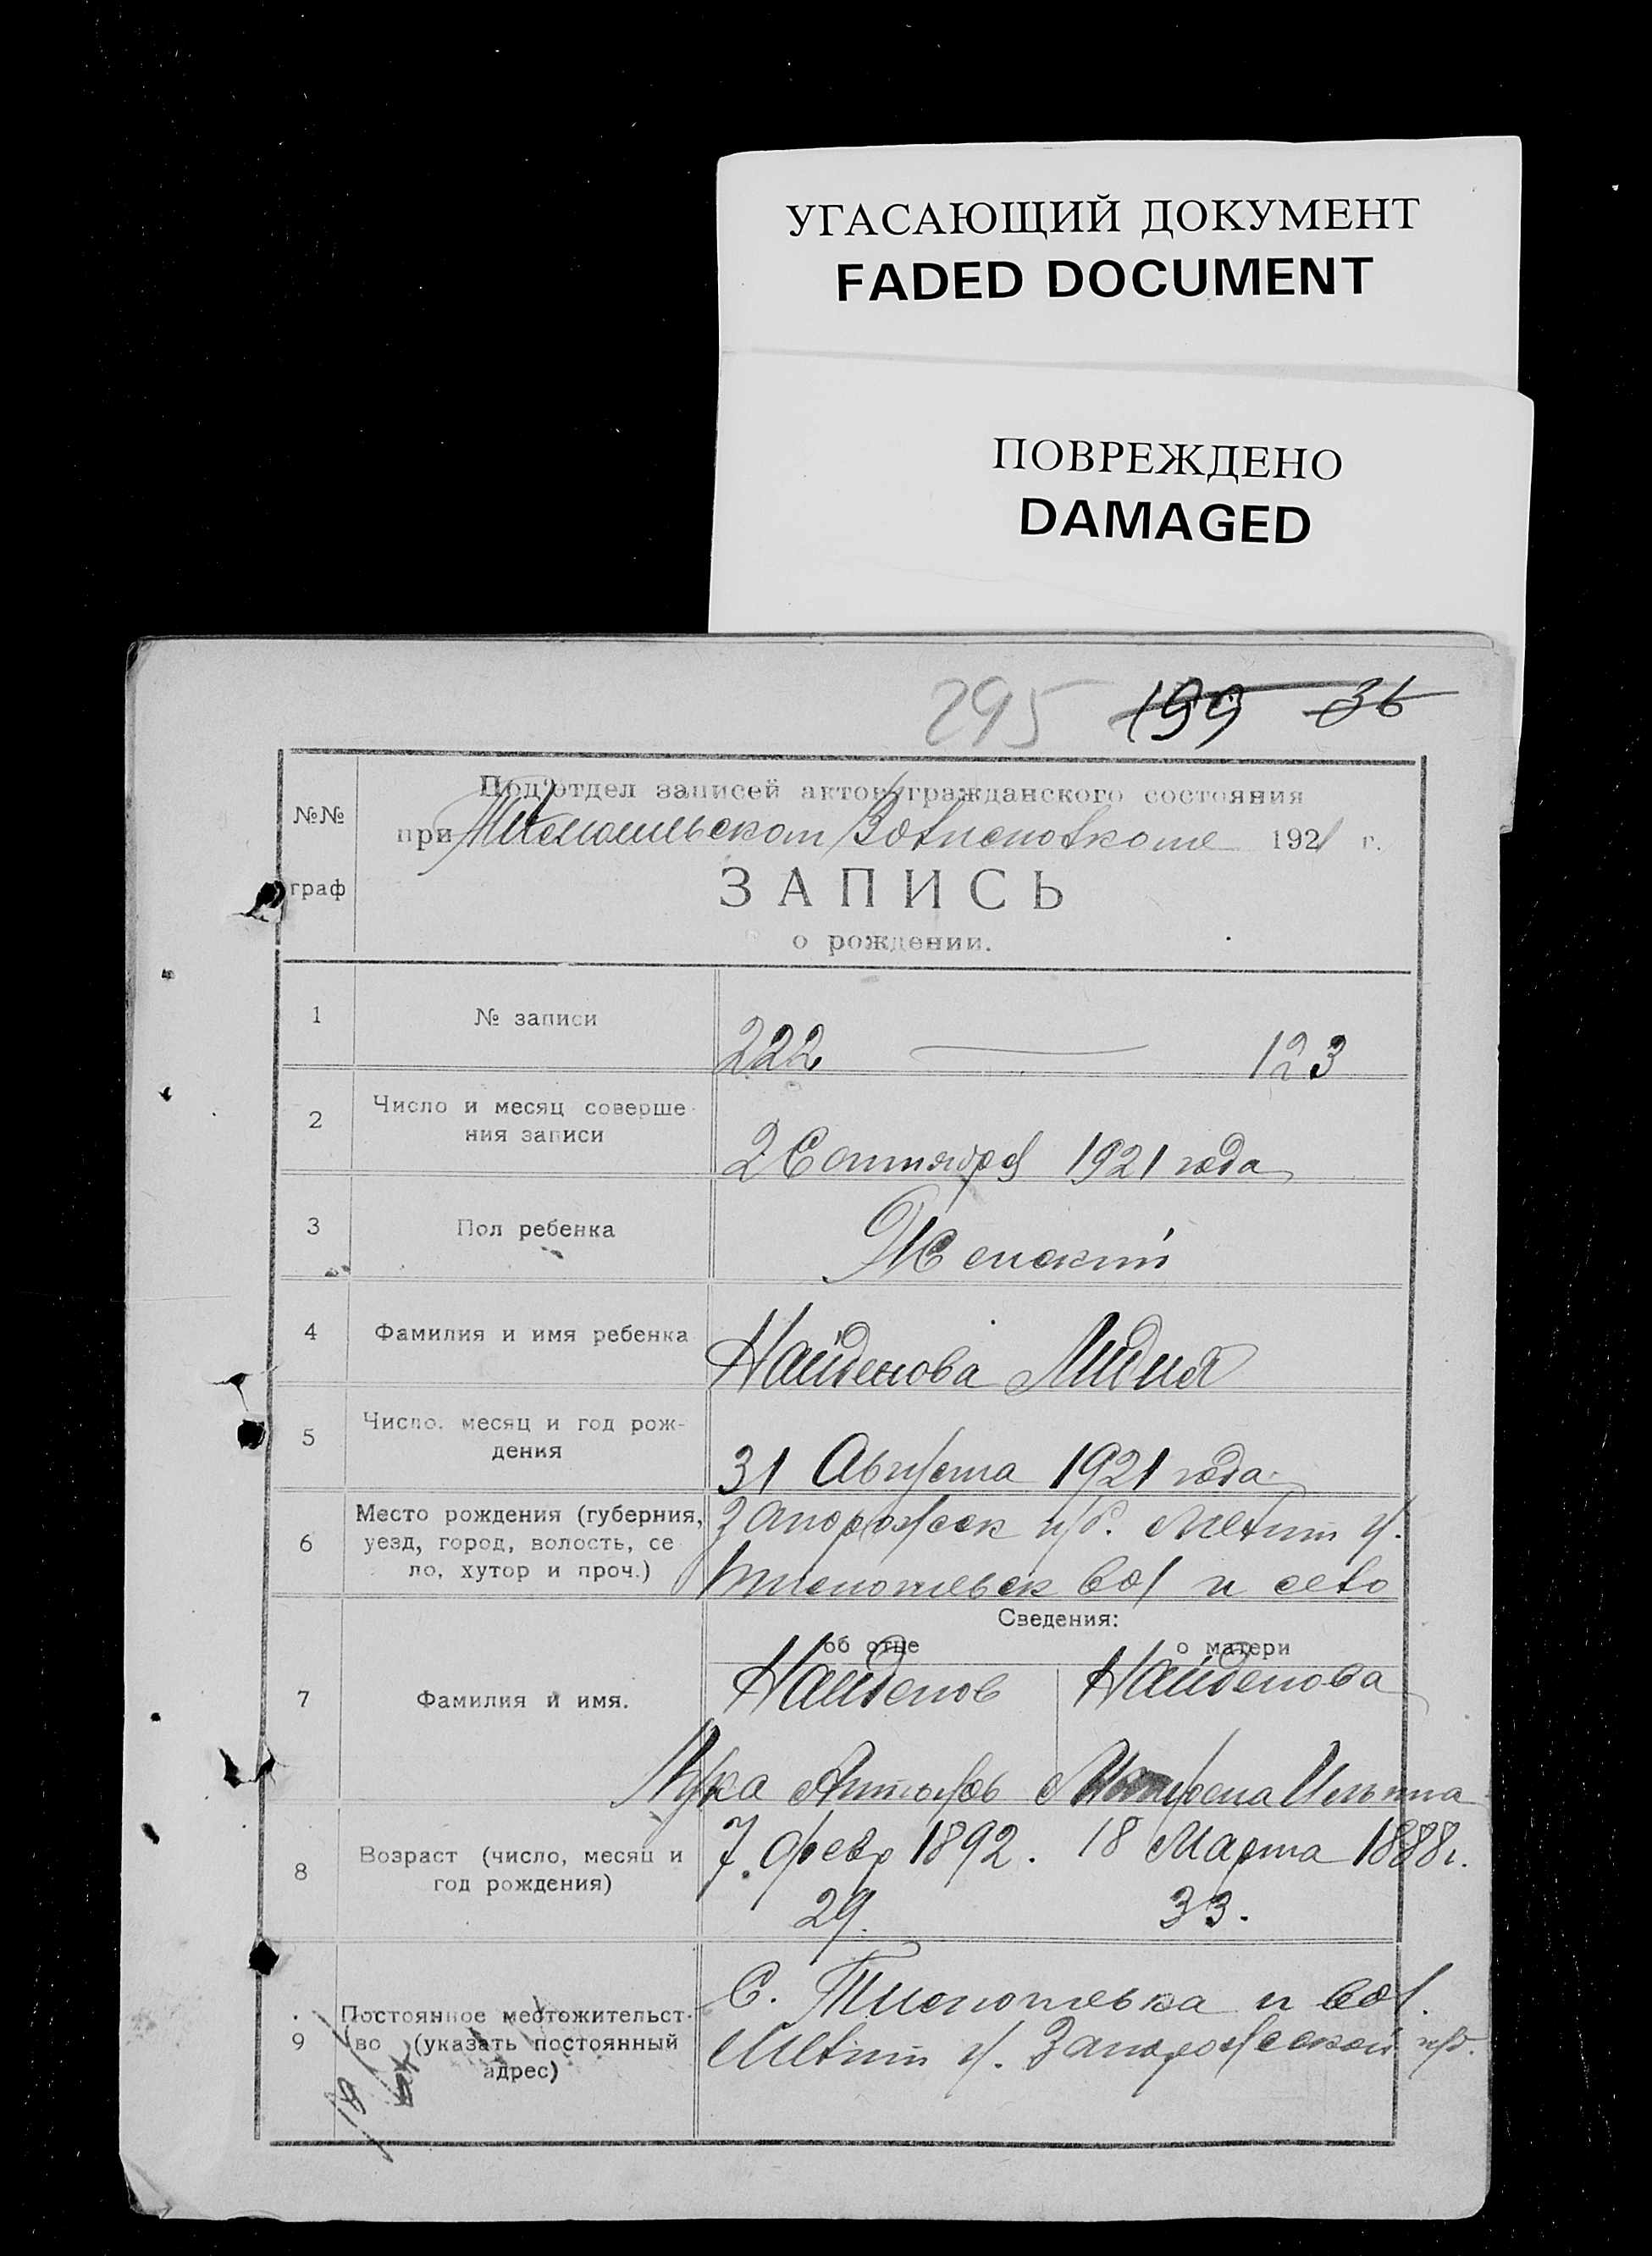 УГАСАЮЩИЙ ДОКУМЕНТ
FADED DOCUMENT
ПОВРЕЖДЕНО
DAMAGED
295 199 36
№№ граф
Под'отдел записей актов гражданского состояния
при 1921 г.
ЗАПИСЬ
о рождении.
1 № записи 222 — 123
2 Число и месяц соверше-
ния записи
2 Сентября 1921 года
3 Пол ребенка Женский
4 Фамилия и имя ребенка Найденова Лидия
5 Число, месяц и год рож-
дения
31 Августа 1921 года
6 Место рождения (губерния,
уезд, город, волость, се
ло, хутор и проч.)
Запорожск губ. Мелит у.
вол и село
Сведения:
об отце о матери
7 Фамилия и имя.
Найденов Найденова
Лука
8 Возраст (число, месяц и
год рождения)
7. февр 1892. 18 Марта 1888г.
29. 33.
9 Постоянное местожительст-
во (указать постоянный
адрес)
С. Тимошевка и вол.
Мелит у. Запорожской губ.